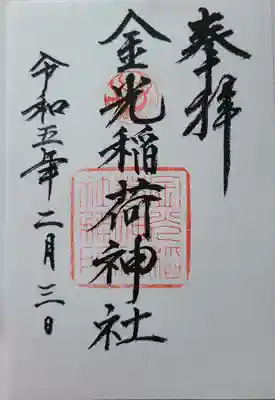 奉拝
金光稲荷神社
令和五年二月三日